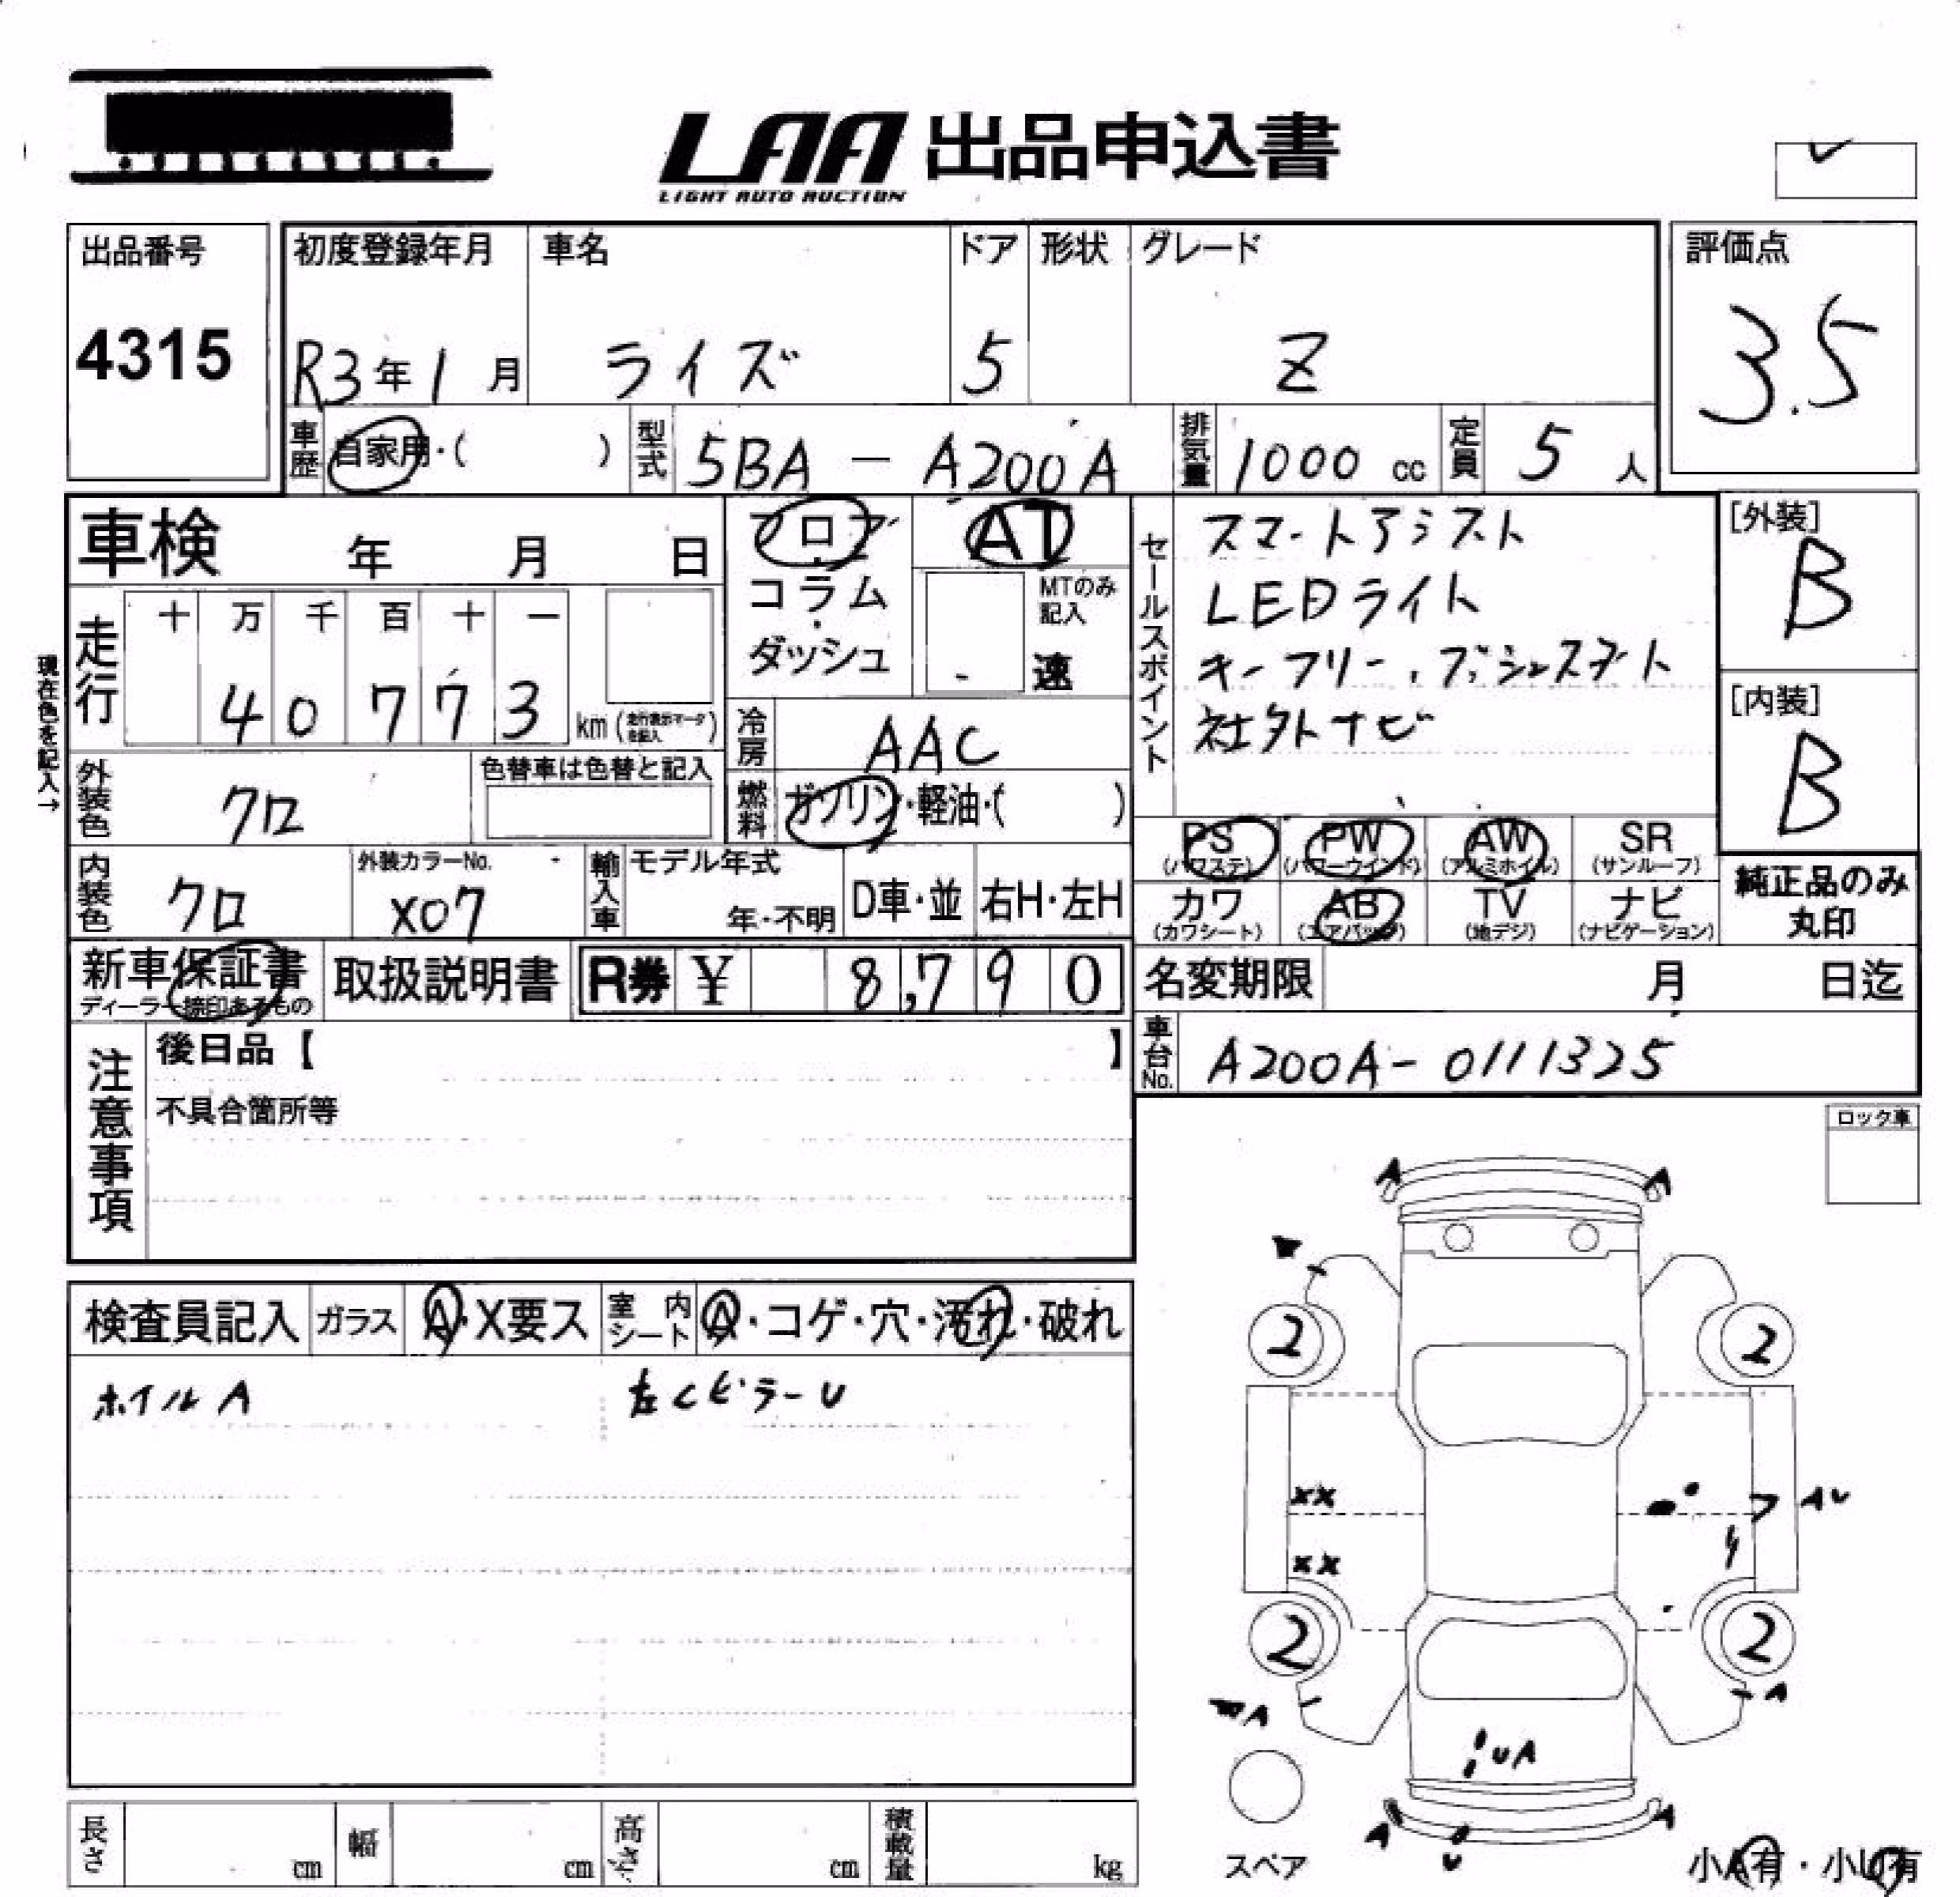 LAA 出品申込書
LIGHT AUTO AUCTION
出品番号
4315
初度登録年月
R3年1月
車名
ライズ
ドア
5
形状
グレード
Z
評価点
3.5
車歴 自家用・( )
型式 5BA - A200A
排気量 1000 cc
定員 5 人
車検 年 月 日
フロア
コラム
ダッシュ
AT
MTのみ記入
速
セールスポイント
スマートアシスト
LEDライト
キーフリー、プッシュスタート
社外ナビ
[外装]
B
[内装]
B
現在色を記入→
走行
十 万 千 百 十 一
4 0 7 7 3 km (走行表示マータを記入)
冷房 AAC
燃料 ガソリン・軽油・( )
外装色 クロ
色替車は色替と記入
内装色 クロ
外装カラーNo.
X07
輸入車
モデル年式
年・不明
D車・並
右H・左H
PS (パワステ)
PW (パワーウインド)
AW (アルミホイル)
SR (サンルーフ)
カワ (カワシート)
AB (エアバッグ)
TV (地デジ)
ナビ (ナビゲーション)
純正品のみ
丸印
新車保証書
ディーラー捺印あるもの
取扱説明書
R券 ¥ 8,790
名変期限 月 日迄
車台No. A200A-0111325
注意事項
後日品【 】
不具合箇所等
ロック車
検査員記入
ガラス A・X要ス
室内シート A・コゲ・穴・汚れ・破れ
ホイルA
左CピラーU
A A
2 2
XX
AU
XX
2 2
A
A
UA
A A
U
スペア
小A有・小U有
長さ cm
幅 cm
高さ cm
積載量 kg